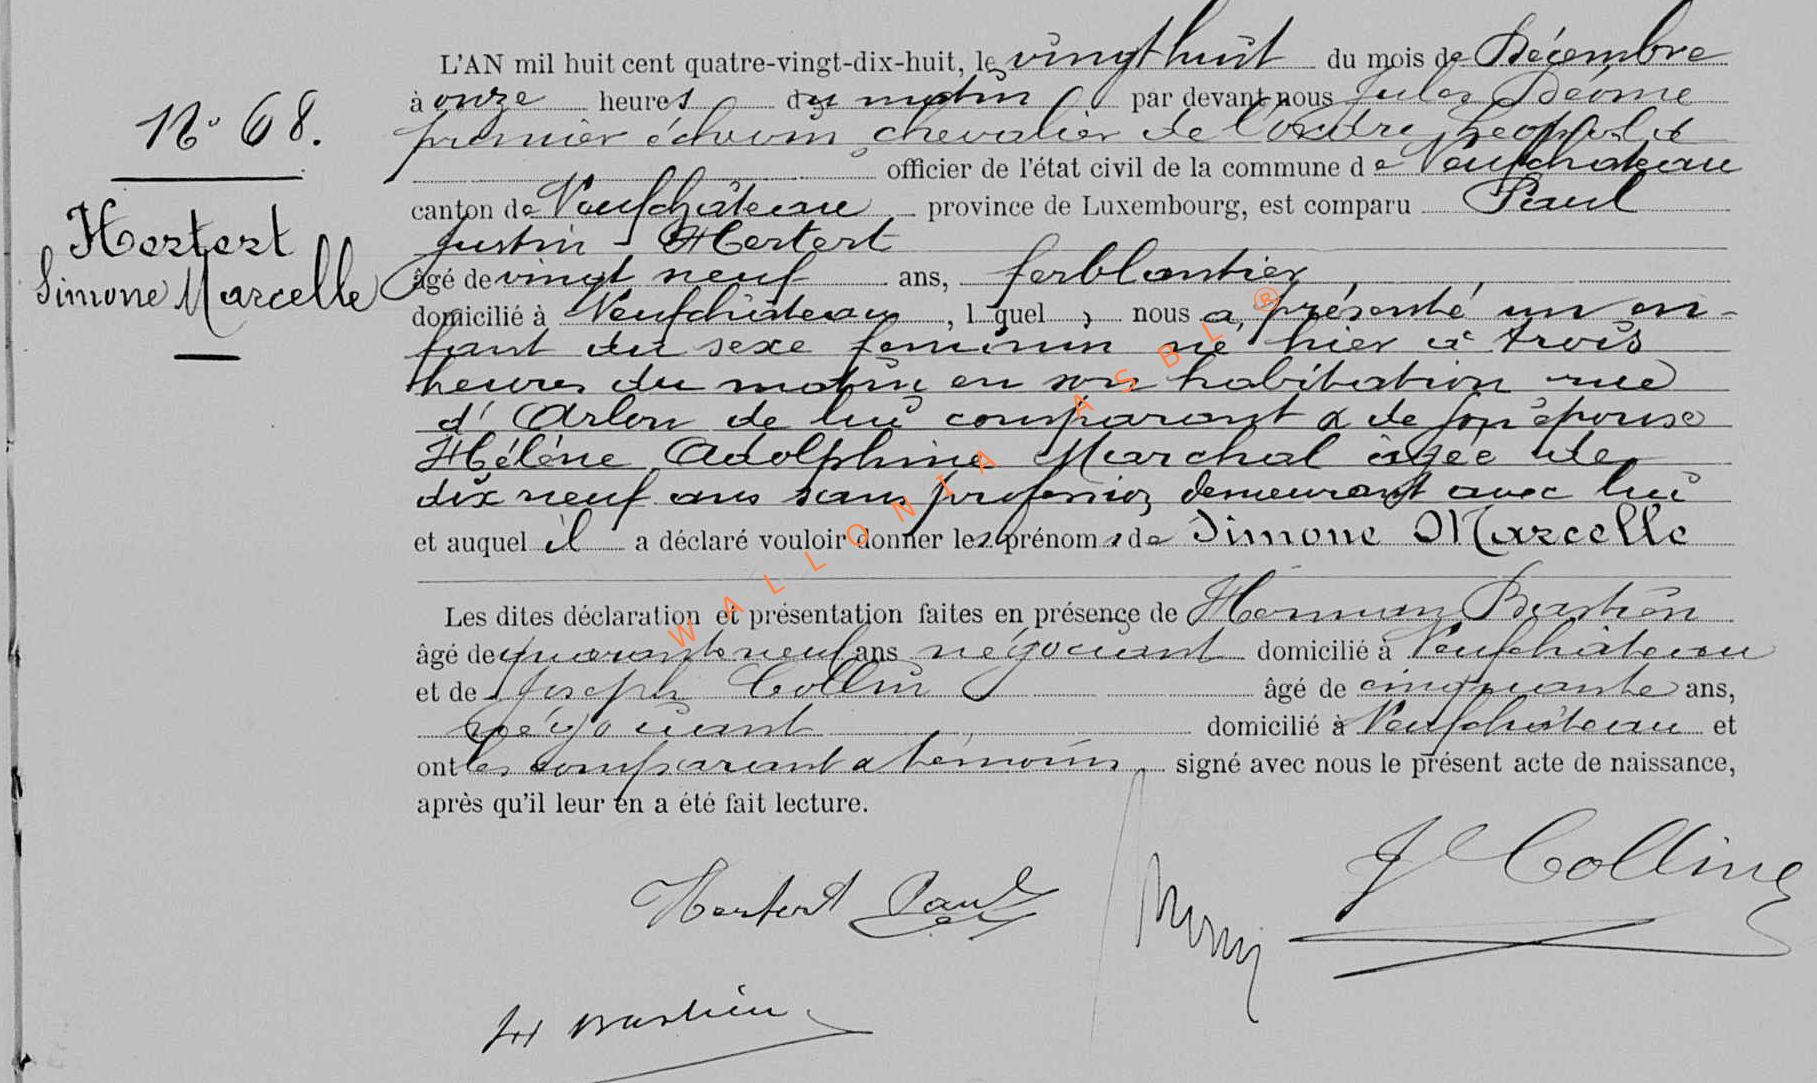 N° 68.
Hertert
Simone Marcelle
L'AN mil huit cent quatre-vingt-dix-huit, le vingt huit du mois de Décembre
à onze heures du matin par devant nous Jules
premier échevin chevalier de l'ordre Léopold
officier de l'état civil de la commune de Neufchateau
canton de Neufchâteau province de Luxembourg, est comparu Paul
Justin Hertert
âgé de vingt neuf ans, ferblantier
domicilié à Neufchâteau, lquel, nous a, présenté un en-
fant du sexe féminin né hier à trois
heures du matin en son habitation rue
d'Arlon de lui comparant & de son épouse
Hélène Adolphine Marchal âgée de
dix neuf ans sans profession demeurant avec lui
et auquel il a déclaré vouloir donner les prénoms de Simone Marcelle
Les dites déclaration et présentation faites en présence de Herman Bastien
âgé de quarante neuf ans négociant domicilié à Neufchâteau
et de Joseph Collin âgé de cinquante ans,
négociant domicilié à Neufchâteau et
ont les comparant & témoins signé avec nous le présent acte de naissance,
après qu'il leur en a été fait lecture.
Hertert Paul J Colling
H Bastien
WALLONIA ASBL ®